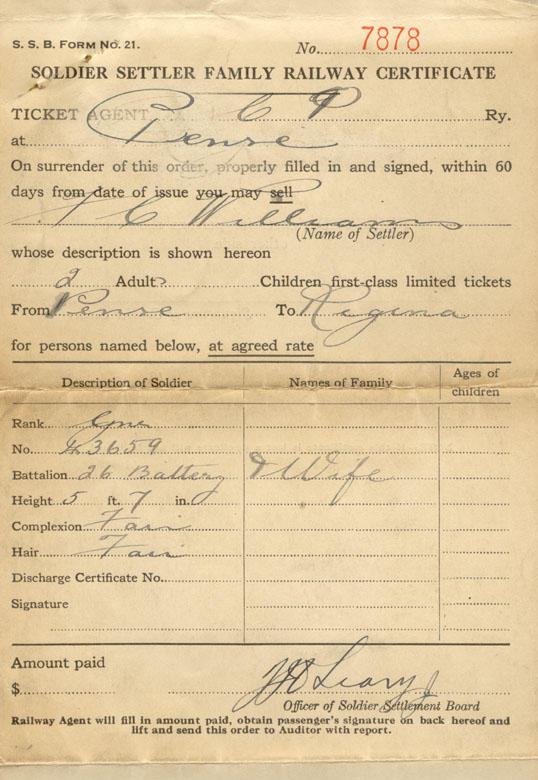 S. S. B. FORM NO. 21.
No. 7878
SOLDIER SETTLER FAMILY RAILWAY CERTIFICATE
TICKET AGENT C P Ry.
at Pense
On surrender of this order, properly filled in and signed, within 60
days from date of issue you may sell
T C Williams
(Name of Settler)
whose description is shown hereon
2 Adults Children first-class limited tickets
From Pense To Regina
for persons named below, at agreed rate
Description of Soldier Names of Family Ages of children
Rank Gnr
No. 43659
Battalion 26 Battery & Wife
Height 5 ft. 7 in.
Complexion Fair
Hair Fair
Discharge Certificate No.
Signature
Amount paid
$
Leary
Officer of Soldier Settlement Board
Railway Agent will fill in amount paid, obtain passenger's signature on back hereof and
lift and send this order to Auditor with report.